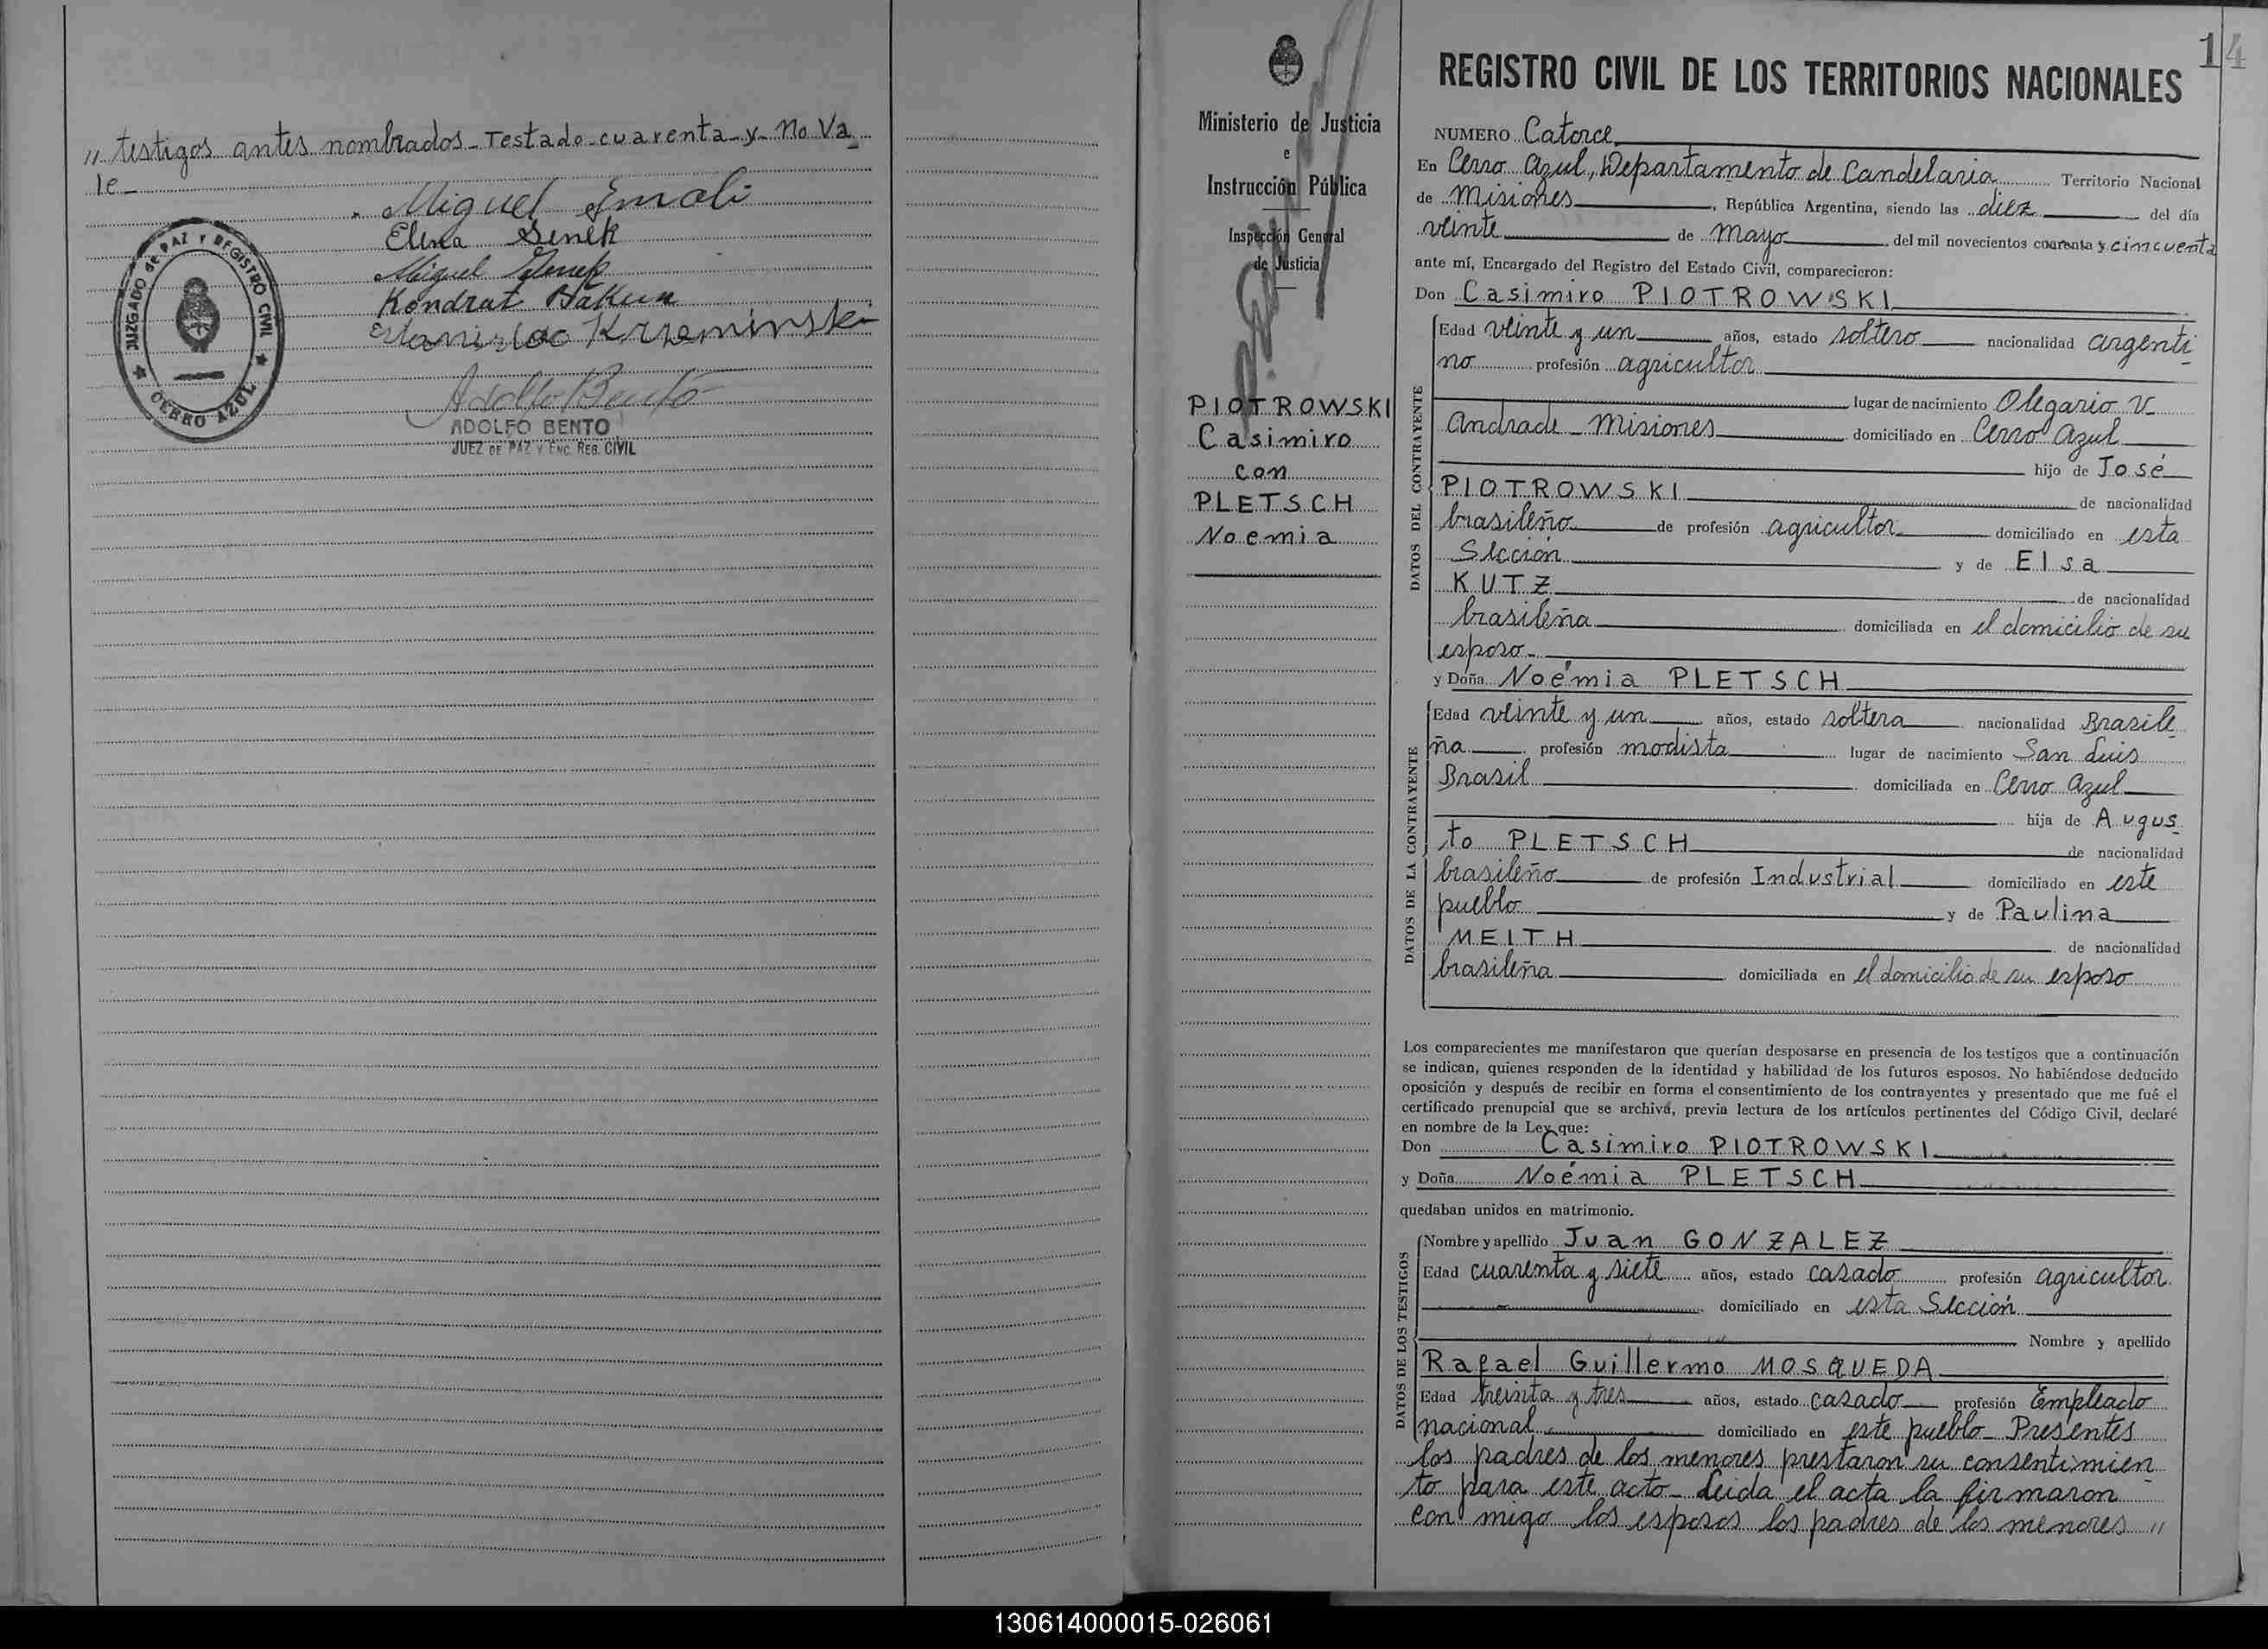 " testigos antes nombrados - Testado - cuarenta - y - no Va_
le -
Miguel
Elena Senek
Miguel
Kondrat Bakun
Estanislao Krzeminski
JUZGADO de PAZ Y REGISTRO CIVIL
CERRO AZUL
Adolfo Bento
ADOLFO BENTO
JUEZ DE PAZ Y ENC. REG. CIVIL
Ministerio de Justicia
e
Instrucción Pública
Inspección General
de Justicia
PIOTROWSKI
Casimiro
con
PLETSCH
Noemia
14
REGISTRO CIVIL DE LOS TERRITORIOS NACIONALES
NUMERO Catorce
En Cerro Azul, Departamento de Candelaria Territorio Nacional
de Misiones, República Argentina, siendo las diez del día
veinte de mayo del mil novecientos cuarenta y cincuenta
ante mí, Encargado del Registro del Estado Civil, comparecieron:
Don Casimiro PIOTROWSKI
DATOS DEL CONTRAYENTE
Edad veinte y un años, estado soltero nacionalidad argenti_
no profesión agricultor
lugar de nacimiento Olegario V.
Andrade - Misiones domiciliado en Cerro Azul
hijo de José
PIOTROWSKI de nacionalidad
brasileño de profesión agricultor domiciliado en esta
Sección y de Elsa
KUTZ de nacionalidad
brasileña domiciliada en el domicilio de su
esposo -
y Doña Noémia PLETSCH
DATOS DE LA CONTRAYENTE
Edad veinte y un años, estado soltera nacionalidad Brasile_
ña profesión modista lugar de nacimiento San Luis
Brasil domiciliada en Cerro Azul
hija de Augus_
to PLETSCH de nacionalidad
brasileño de profesión Industrial domiciliado en este
pueblo y de Paulina
MEITH de nacionalidad
brasileña domiciliada en el domicilio de su esposo
Los comparecientes me manifestaron que querían desposarse en presencia de los testigos que a continuación
se indican, quienes responden de la identidad y habilidad de los futuros esposos. No habiéndose deducido
oposición y después de recibir en forma el consentimiento de los contrayentes y presentado que me fué el
certificado prenupcial que se archiva, previa lectura de los artículos pertinentes del Código Civil, declaré
en nombre de la Ley que:
Don Casimiro PIOTROWSKI
y Doña Noémia PLETSCH
quedaban unidos en matrimonio.
DATOS DE LOS TESTIGOS
Nombre y apellido Juan GONZALEZ
Edad cuarenta y siete años, estado casado profesión agricultor
domiciliado en esta Sección
Nombre y apellido
Rafael Guillermo MOSQUEDA
Edad treinta y tres años, estado casado profesión Empleado
nacional domiciliado en este pueblo - Presentes
los padres de los menores prestaron su consentimien_
to para este acto - Leida el acta la firmaron
con migo los esposos los padres de los menores "
130614000015-026061